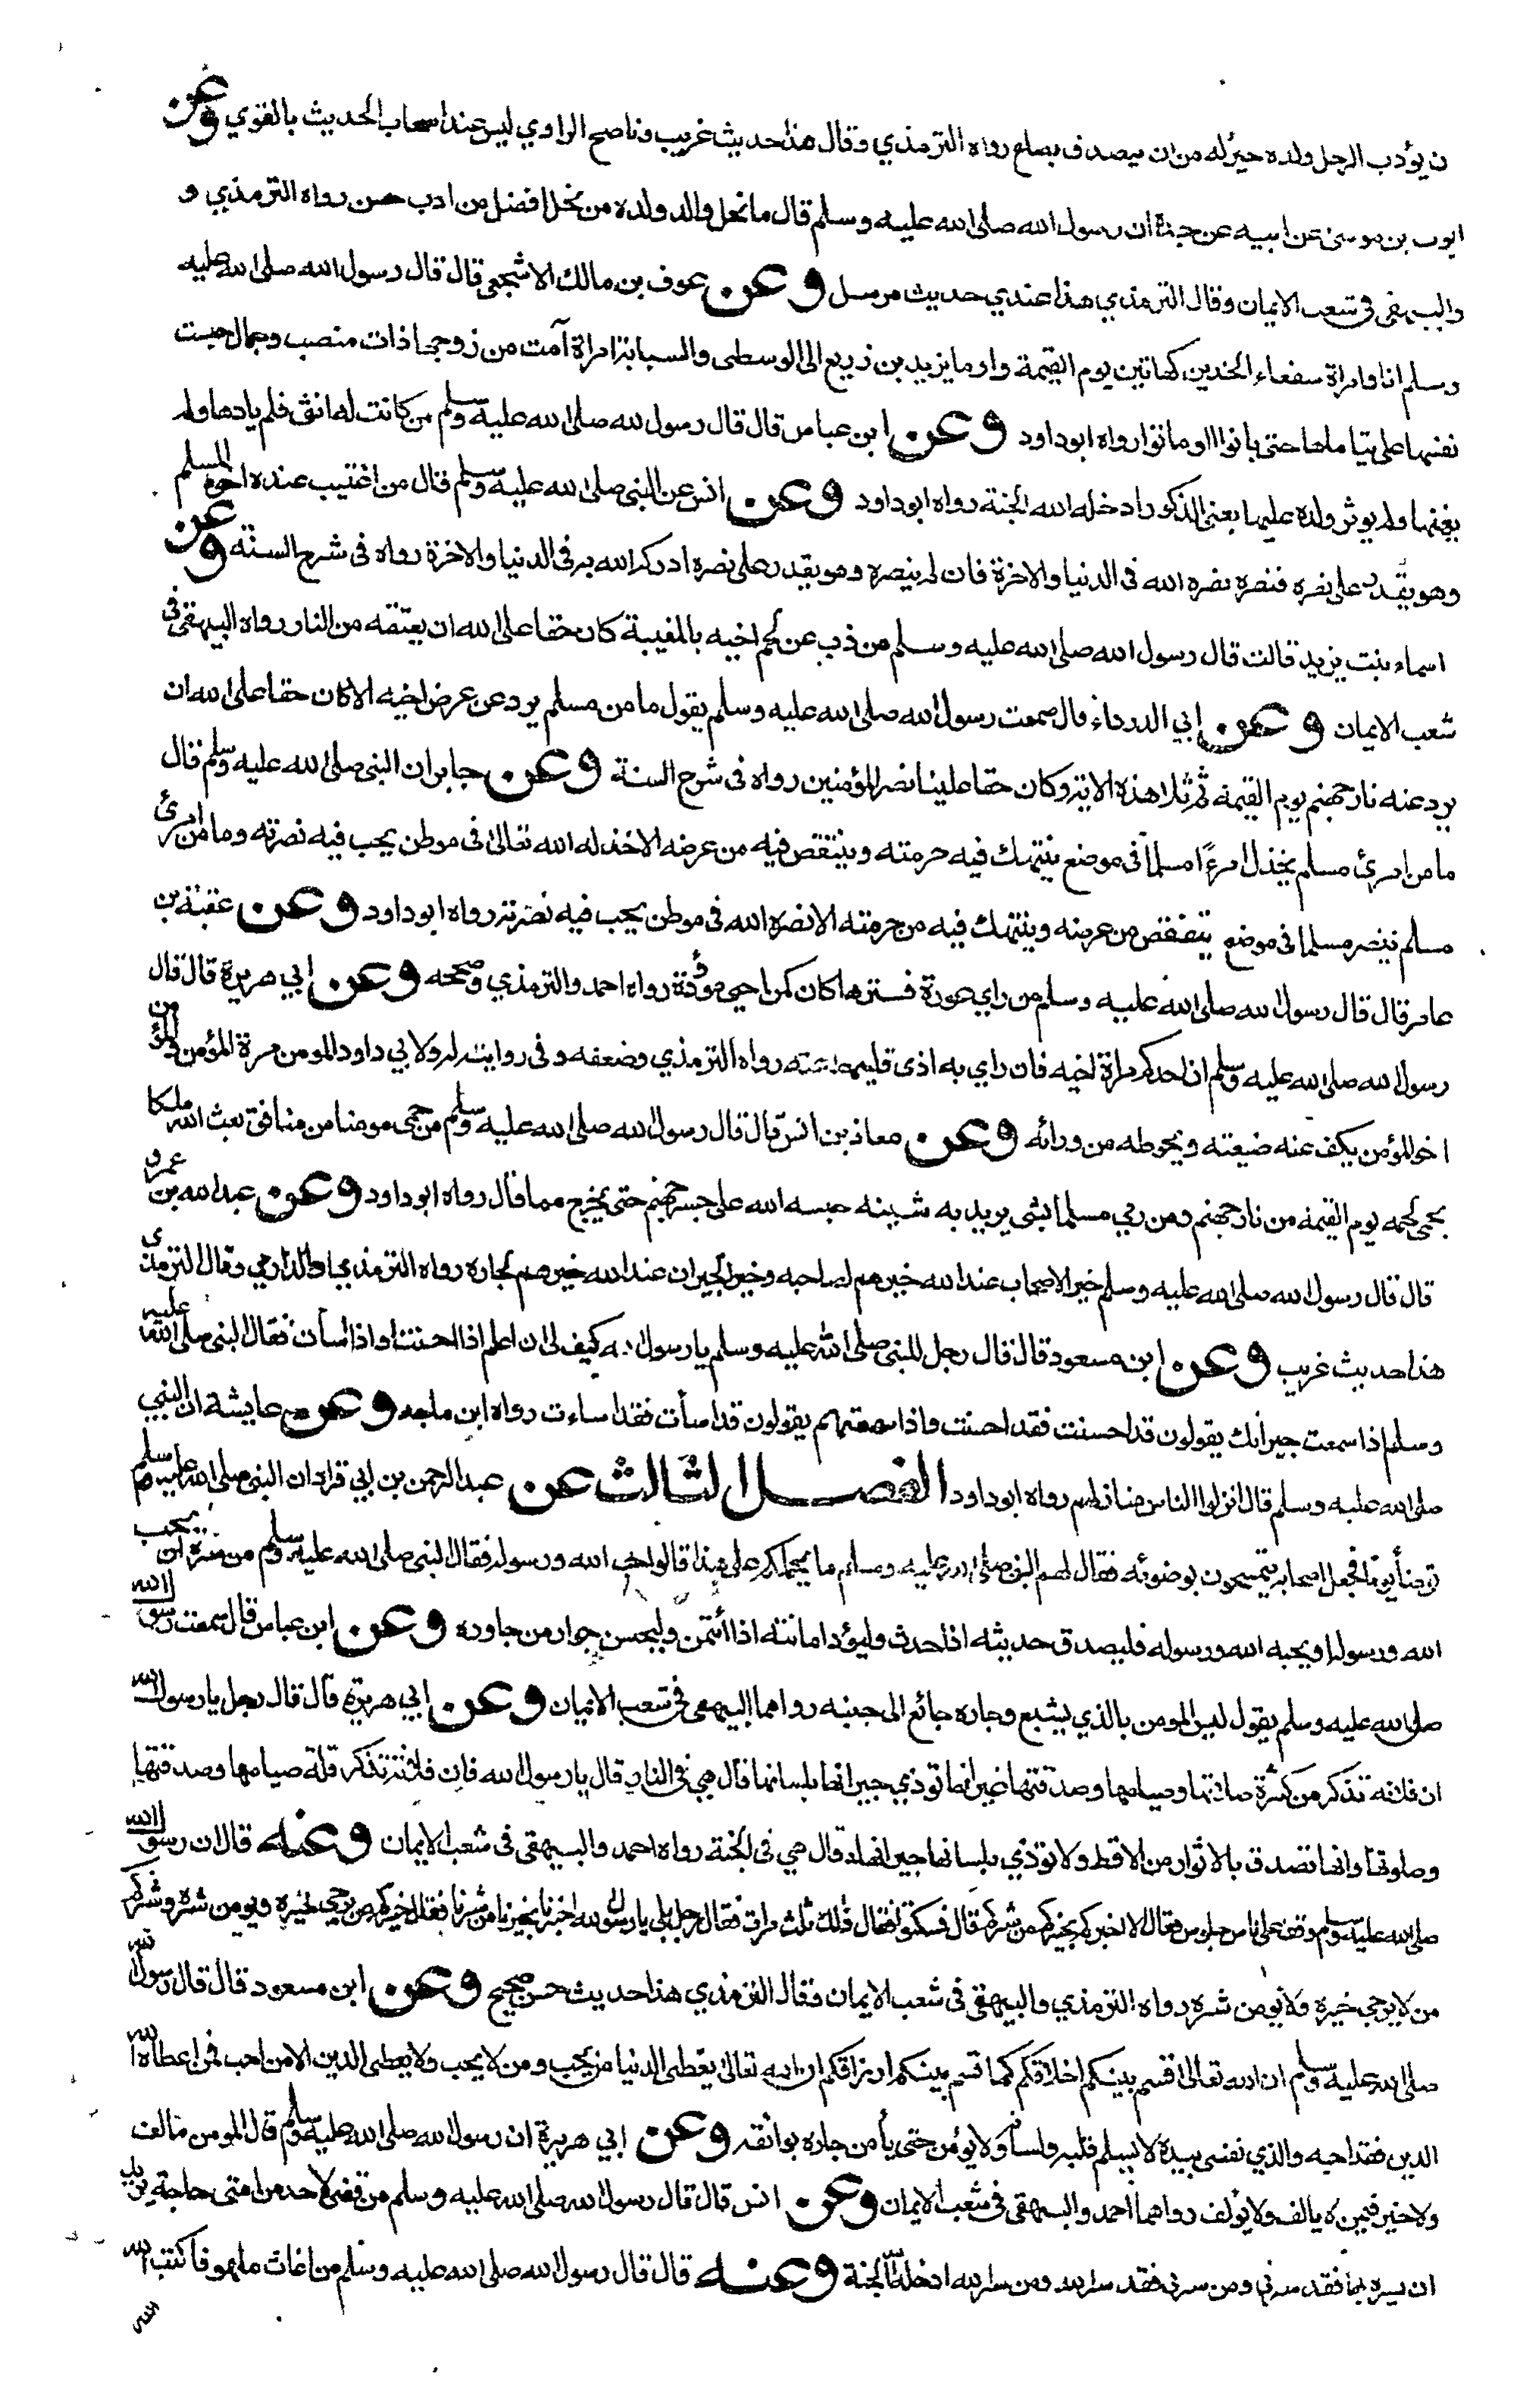 ن يؤدب الرجل ولده خير له من ان يتصدق بصاع رواه الترمذي وقال هذا حديث غريب وناصح الراوي ليس عند اصحاب الحديث بالقوي وعن
ايوب بن موسى عن ابيه عن جده ان رسول الله صلى الله عليه وسلم قال ما نحل والد ولده من نحل افضل من ادب حسن رواه الترمذي و
والبيهقي في شعب الايمان وقال الترمذي هذا عندي حديث مرسل وعن عوف بن مالك الاشجعي قال قال رسول الله صلى الله عليه
وسلم انا وامراة سفعاء الخدين كهاتين يوم القيمة واوما يزيد بن زريع الى الوسطى والسبابة امراة آمت من زوجها ذات منصب وجمال حبست
نفسها على يتاماها حتى بانوا او ماتوا رواه ابوداود وعن ابن عباس قال قال رسول الله صلى الله عليه وسلم من كانت له انثى فلم يادها ولم
يهنها ولم يوثر ولده عليها يعني الذكور ادخله الله الجنة رواه ابوداود وعن انس عن النبي صلى الله عليه وسلم قال من اغتيب عنده اخوه المسلم
وهو يقدر على نصره فنصره نصره الله في الدنيا والاخرة فان لم ينصره وهو يقدر على نصره ادركه الله به في الدنيا والاخرة رواه في شرح السنة وعن
اسماء بنت يزيد قالت قال رسول الله صلى الله عليه وسلم من ذب عن لحم اخيه بالمغيبة كان حقا على الله ان يعتقه من النار رواه البيهقي في
شعب الايمان وعن ابي الدرداء قال سمعت رسول الله صلى الله عليه وسلم يقول ما من مسلم يرد عن عرض اخيه الا كان حقا على الله ان
يرد عنه نار جهنم يوم القيمة ثم تلا هذه الاية وكان حقا علينا نصر المؤمنين رواه في شرح السنة وعن جابر ان النبي صلى الله عليه وسلم قال
ما من امرئ مسلم يخذل امرءا مسلما في موضع ينتهك فيه حرمته وينتقص فيه من عرضه الا خذله الله تعالى في موطن يحب فيه نصرته وما من امرئ
مسلم ينصر مسلما في موضع ينتقص من عرضه وينتهك فيه من حرمته الا نصره الله في موطن يحب فيه نصرته رواه ابوداود وعن عقبة بن
عامر قال قال رسول الله صلى الله عليه وسلم من راي عورة فسترها كان كمن احيى موؤدة رواه احمد والترمذي وصححه وعن ابي هريرة قال قال
رسول الله صلى الله عليه وسلم ان احدكم مراة اخيه فان راي به اذى فليمط عنه رواه الترمذي وضعفه وفي رواية له ولابي داود المومن مرة المؤمن والمؤمن
اخو المؤمن يكف عنه ضيعته ويحوطه من ورائه وعن معاذ بن انس قال قال رسول الله صلى الله عليه وسلم من حمى مومنا من منافق بعث الله ملكا
يحمي لحمه يوم القيمة من نار جهنم ومن رمي مسلما بشي يريد به شينه حبسه الله على جسر جهنم حتى يخرج مما قال رواه ابوداود وعن عبدالله بن عمرو
قال قال رسول الله صلى الله عليه وسلم خير الاصحاب عند الله خيرهم لصاحبه وخير الجيران عند الله خيرهم لجاره رواه الترمذي والدارمي وقال الترمذي
هذا حديث غريب وعن ابن مسعود قال قال رجل للنبي صلى الله عليه وسلم يا رسول الله كيف لي ان اعلم اذا احسنت او اذا اسأت فقال النبي صلى الله عليه
وسلم اذا سمعت جيرانك يقولون قد احسنت فقد احسنت واذا سمعتهم يقولون قد اسأت فقد اساءت رواه ابن ماجه وعن عايشة ان النبي
صلى الله عليه وسلم قال انزلوا الناس منازلهم رواه ابوداود الفصل الثالث عن عبدالرحمن بن ابي قراد ان النبي صلى الله عليه وسلم
توضأ يوما فجعل اصحابه يتمسحون بوضوئه فقال لهم النبي صلى الله عليه وسلم ما يحملكم على هذا قالوا حب الله ورسوله فقال النبي صلى الله عليه وسلم من سره ان يحب
الله ورسوله او يحبه الله ورسوله فليصدق حديثه اذا حدث وليؤد امانته اذا ائتمن وليحسن جوار من جاوره وعن ابن عباس قال سمعت رسول الله
صلى الله عليه وسلم يقول ليس المومن بالذي يشبع وجاره جائع الى جنبه رواهما البيهقي في شعب الايمان وعن ابي هريرة قال قال رجل يا رسول الله
ان فلانة تذكر من كثرة صلاتها وصيامها وصدقتها غير انها توذي جيرانها بلسانها قال هي في النار قال يا رسول الله فان فلانة تذكر قلة صيامها وصدقتها
وصلوتها وانها تصدق بالاثوار من الاقط ولا توذي بلسانها جيرانها قال هي في الجنة رواه احمد والبيهقي في شعب الايمان وعنه قال ان رسول الله
صلى الله عليه وسلم وقف على ناس جلوس فقال الا اخبركم بخيركم من شركم قال فسكتوا فقال ذلك ثلث مرات فقال رجل بلى يا رسول الله اخبرنا بخيرنا من شرنا فقال خيركم من يرجى خيره ويومن شره وشركم
من لا يرجى خيره ولا يومن شره رواه الترمذي والبيهقي في شعب الايمان وقال الترمذي هذا حديث حسن صحيح وعن ابن مسعود قال قال رسول الله
صلى الله عليه وسلم ان الله تعالى قسم بينكم اخلاقكم كما قسم بينكم ارزاقكم ان الله تعالى يعطي الدنيا من يحب ومن لا يحب ولا يعطي الدين الا من احب فمن اعطاه الله
الدين فقد احبه والذي نفسي بيده لا يسلم قلبه ولسانه ولا يؤمن حتى يأمن جاره بوائقه وعن ابي هريرة ان رسول الله صلى الله عليه وسلم قال المومن مالف
ولا خير فيمن لا يالف ولا يؤلف رواهما احمد والبيهقي في شعب الايمان وعن انس قال قال رسول الله صلى الله عليه وسلم من قضى لاحد من امتي حاجة يريد
ان يسره بها فقد سرني ومن سرني فقد سر الله ومن سر الله ادخله الله الجنة وعنه قال قال رسول الله صلى الله عليه وسلم من اغاث ملهوفا كتب الله